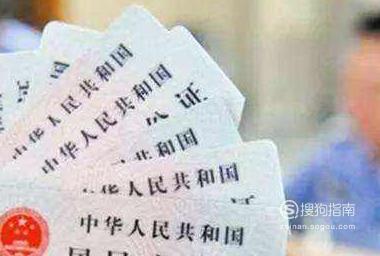 中华人民共和国
中华人民共和国
证
中华人民共和国
中华人民共和国
证
中华人民共和国
国民
搜狗指南
zhinan.sogou.com